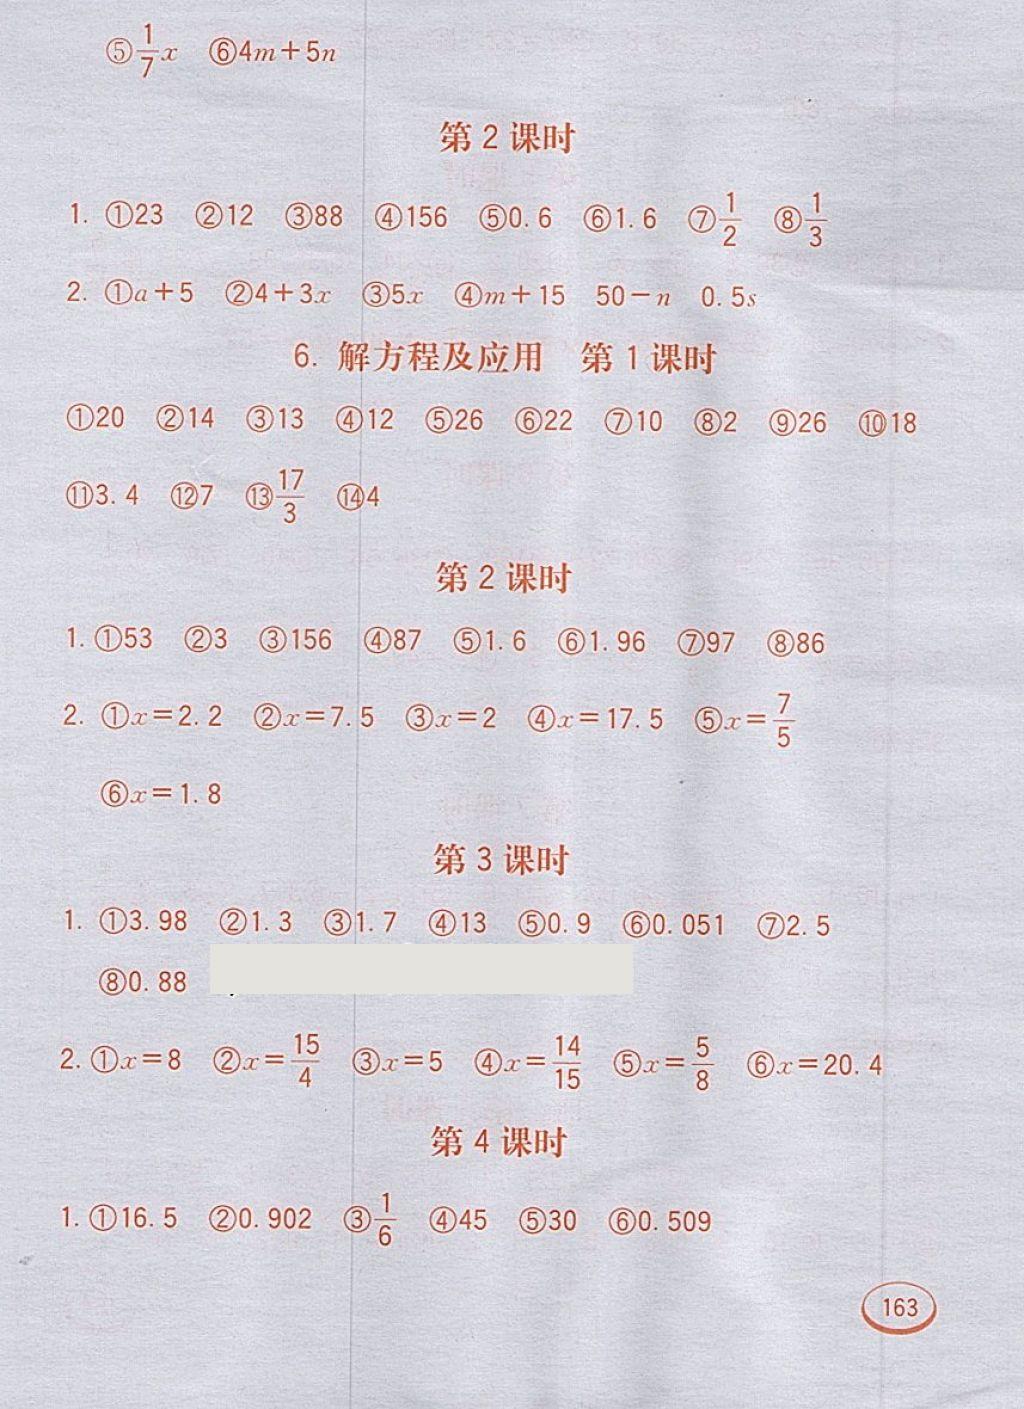 ⑤1/7x ⑥4m+5n
第2课时
1. ①23 ②12 ③88 ④156 ⑤0.6 ⑥1.6 ⑦1/2 ⑧1/3
2. ①a+5 ②4+3x ③5x ④m+15 50-n 0.5s
6. 解方程及应用 第1课时
①20 ②14 ③13 ④12 ⑤26 ⑥22 ⑦10 ⑧2 ⑨26 ⑩18
⑪3.4 ⑫7 ⑬17/3 ⑭4
第2课时
1. ①53 ②3 ③156 ④87 ⑤1.6 ⑥1.96 ⑦97 ⑧86
2. ①x=2.2 ②x=7.5 ③x=2 ④x=17.5 ⑤x=7/5
⑥x=1.8
第3课时
1. ①3.98 ②1.3 ③1.7 ④13 ⑤0.9 ⑥0.051 ⑦2.5
⑧0.88
2. ①x=8 ②x=15/4 ③x=5 ④x=14/15 ⑤x=5/8 ⑥x=20.4
第4课时
1. ①16.5 ②0.902 ③1/6 ④45 ⑤30 ⑥0.509
163